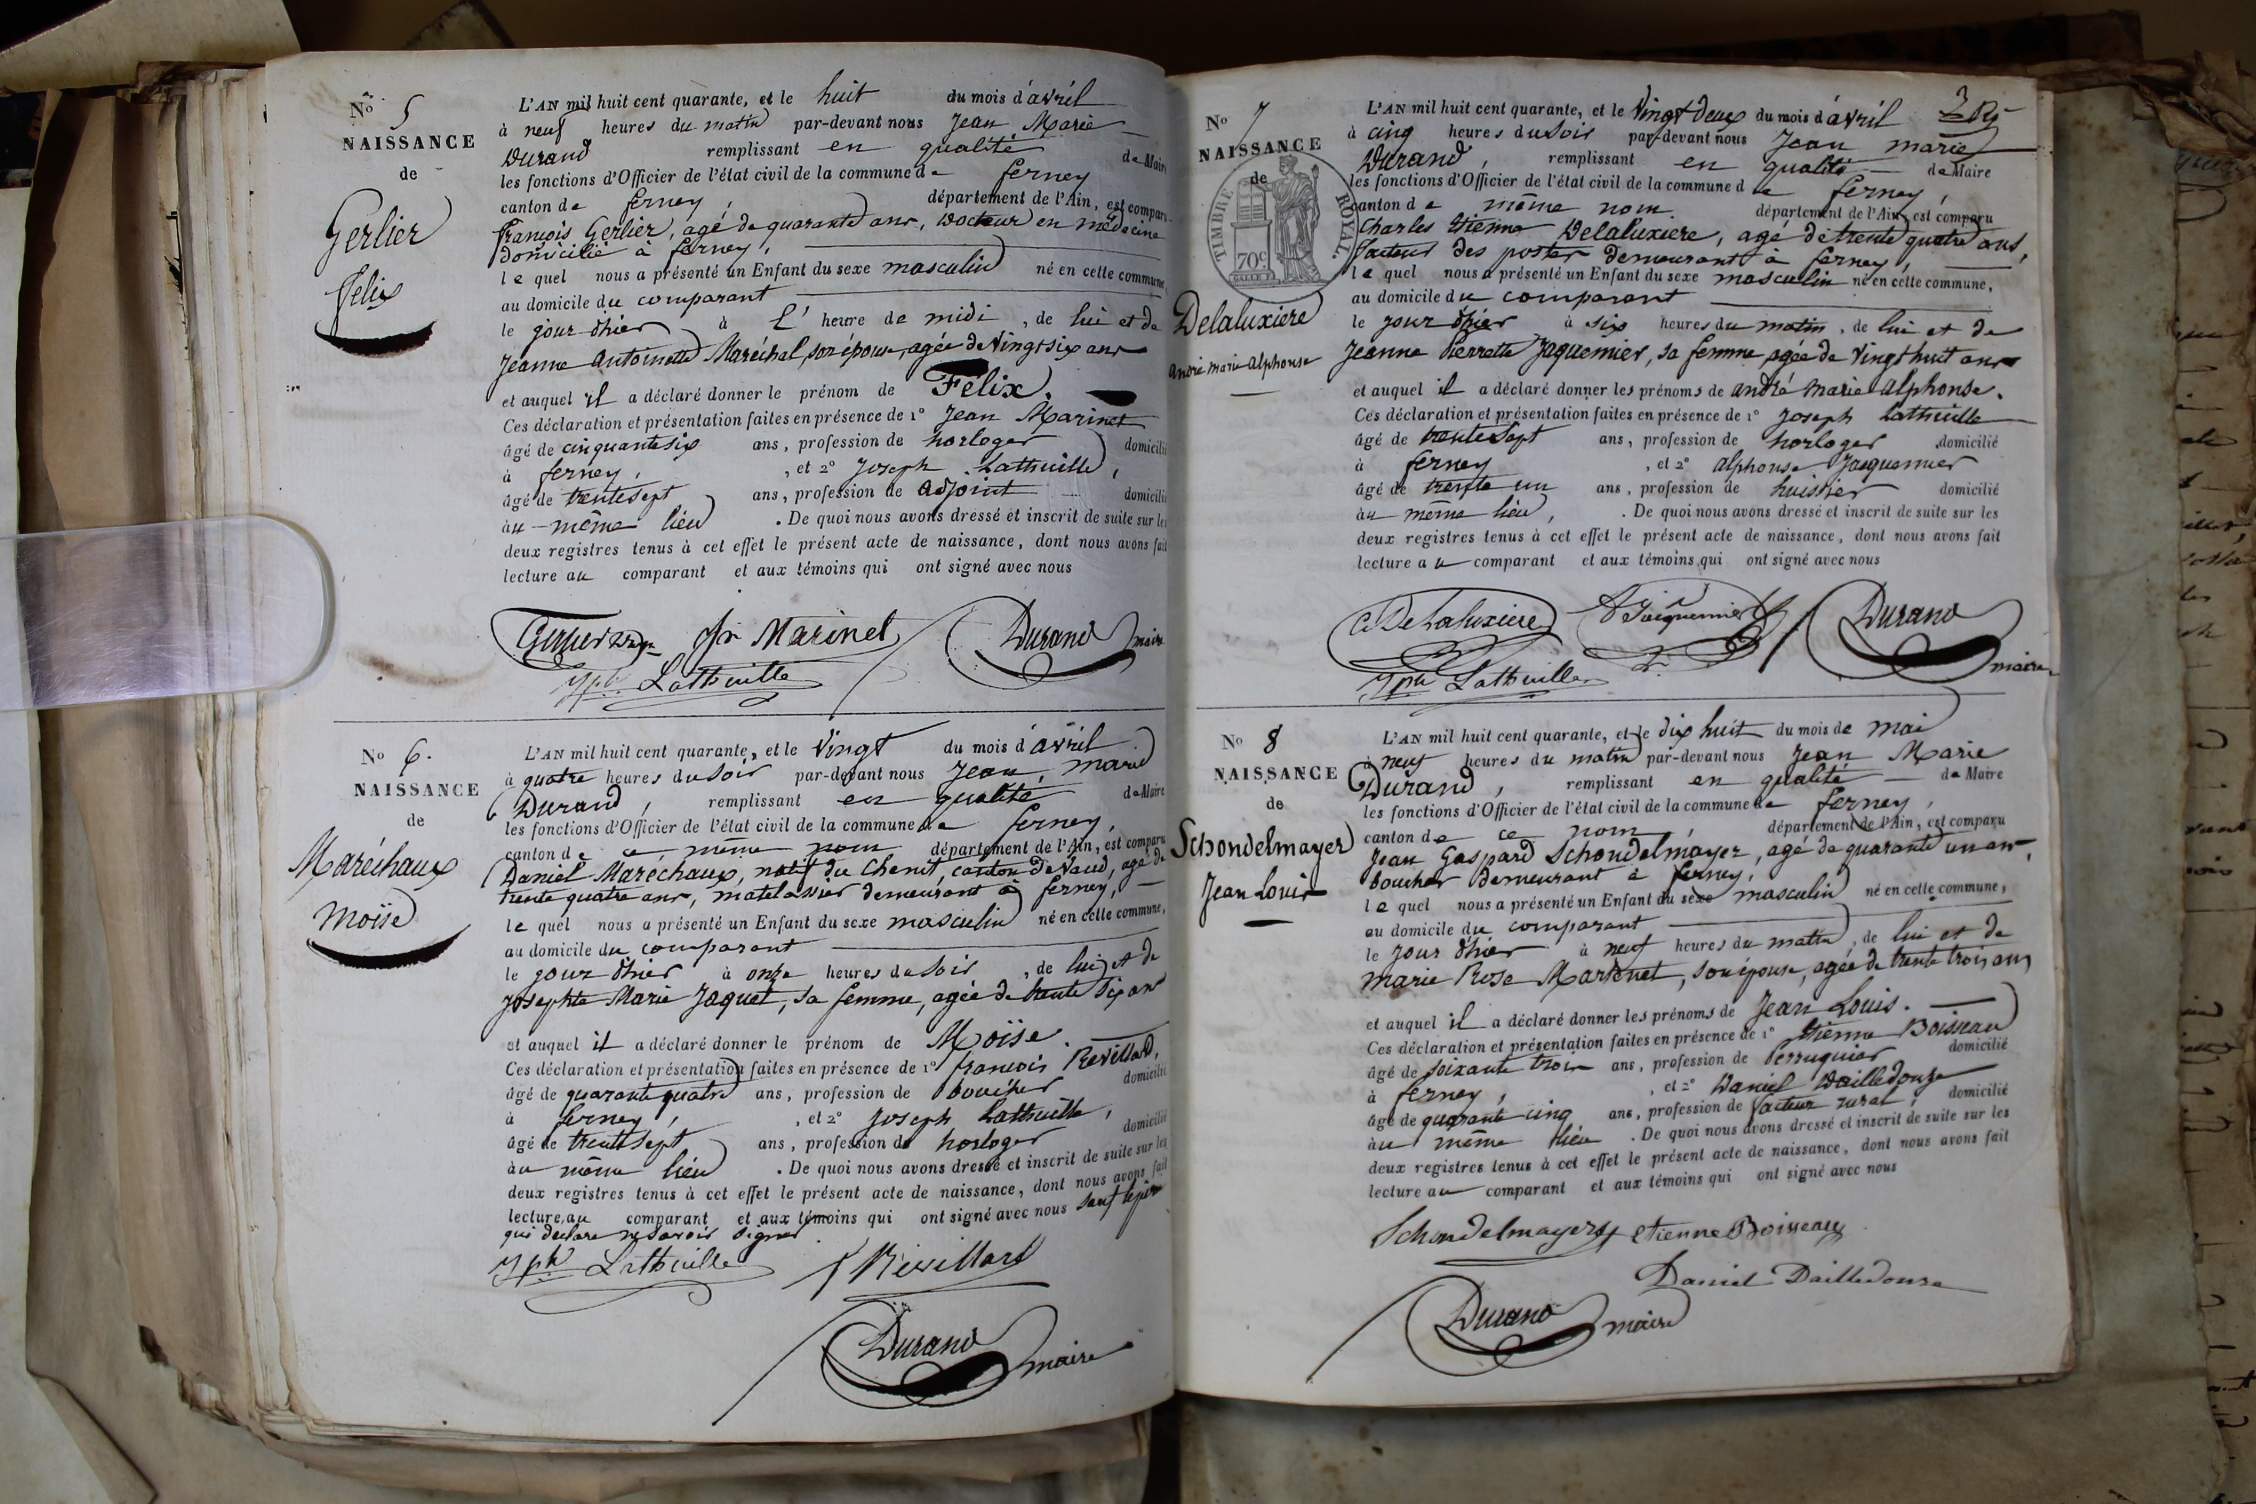 No 5
NAISSANCE
de
Gerlier
felix
L'AN mil huit cent quarante, et le huit du mois d'avril
à neuf heures du matin par-devant nous Jean Marie
Durand remplissant en qualité de Maire
les fonctions d'Officier de l'état civil de la commune de ferney
canton de ferney, département de l'Ain, est comparu
françois Gerlier, agé de quarante ans, Docteur en médecine
domicilié à ferney,
le quel nous a présenté un Enfant du sexe masculin né en cette commune,
au domicile du comparant
le jour d'hier à l' heure de midi, de lui et de
Jeanne Antoinette Maréchal, son épouse, agée de Vingt six ans
et auquel il a déclaré donner le prénom de Félix.
Ces déclaration et présentation faites en présence de 1° Jean Marinet
âgé de cinquante six ans, profession de horloger domicilié
à ferney, , et 2° Joseph Lathuille,
âgé de trente sept ans, profession de adjoint domicilié
au même lieu . De quoi nous avons dressé et inscrit de suite sur les
deux registres tenus à cet effet le présent acte de naissance, dont nous avons fait
lecture au comparant et aux témoins qui ont signé avec nous
Gerlier Jn Marinet Durand maire
Jph Lathuille
No 6.
NAISSANCE
de
Maréchaux
Moïse
L'AN mil huit cent quarante, et le Vingt du mois d'avril
à quatre heures du soir par-devant nous Jean, marie
Durand, remplissant en qualité de Maire
les fonctions d'Officier de l'état civil de la commune de ferney,
canton de ce même nom département de l'Ain, est comparu
Daniel Maréchaux, natif du Chenit, canton de Vaud, agé de
trente quatre ans, matelassier demeurant à ferney,
le quel nous a présenté un Enfant du sexe masculin né en cette commune,
au domicile du comparant
le jour d'hier à onze heures du soir, de lui et de
Josephte Marie Jaquet, sa femme, agée de trente six ans
et auquel il a déclaré donner le prénom de Moïse.
Ces déclaration et présentation faites en présence de 1° françois Revillard,
âgé de quarante quatre ans, profession de boucher domicilié
à ferney, , et 2° Joseph Lathuille,
âgé de trente sept ans, profession de horloger domicilié
au même lieu . De quoi nous avons dressé et inscrit de suite sur les
deux registres tenus à cet effet le présent acte de naissance, dont nous avons fait
lecture au comparant et aux témoins qui ont signé avec nous sauf le père
qui déclare ne savoir signer
Jph Lathuille f Révillard
Durand maire
No 7
NAISSANCE
de
TIMBRE ROYAL.
70c
Delaluxiere
andré marie alphonse
L'AN mil huit cent quarante, et le Vingt deux du mois d'avril
à cinq heures du soir par-devant nous Jean marie
Durand, remplissant en qualité de Maire
les fonctions d'Officier de l'état civil de la commune de ferney,
canton de même nom. département de l'Ain, est comparu
Charles Etienne Delaluxiere, agé de trente quatre ans,
facteur des postes demeurant à ferney,
le quel nous a présenté un Enfant du sexe masculin né en cette commune,
au domicile du comparant
le jour d'hier à six heures du matin, de lui et de
Jeanne Pierrette Jaquemier, sa femme, agée de Vingt huit ans
et auquel il a déclaré donner les prénoms de andré marie alphonse.
Ces déclaration et présentation faites en présence de 1° Joseph Lathuille
âgé de trente sept ans, profession de horloger domicilié
à ferney , et 2° alphonse Jacquemier
âgé de trente un ans, profession de huissier domicilié
au même lieu, . De quoi nous avons dressé et inscrit de suite sur les
deux registres tenus à cet effet le présent acte de naissance, dont nous avons fait
lecture au comparant et aux témoins qui ont signé avec nous
C. Delaluxiere A Jacquemier Durand maire
Jph Lathuille
No 8
NAISSANCE
de
Schondelmayer
Jean Louis
L'AN mil huit cent quarante, et le dix huit du mois de mai
à neuf heures du matin par-devant nous Jean Marie
Durand, remplissant en qualité de Maire
les fonctions d'Officier de l'état civil de la commune de ferney,
canton de ce nom, département de l'Ain, est comparu
Jean Gaspard Schondelmayer, agé de quarante un ans,
boucher demeurant à ferney,
le quel nous a présenté un Enfant du sexe masculin né en cette commune,
au domicile du comparant
le jour d'hier à neuf heures du matin, de lui et de
marie Rose Martenet, son épouse, agée de trente trois ans
et auquel il a déclaré donner les prénoms de Jean Louis.
Ces déclaration et présentation faites en présence de 1° Etienne Boisseau
âgé de soixante trois ans, profession de Perruquier domicilié
à ferney, , et 2° Daniel Dailledouze
âgé de quarante cinq ans, profession de facteur rural, domicilié
au même lieu . De quoi nous avons dressé et inscrit de suite sur les
deux registres tenus à cet effet le présent acte de naissance, dont nous avons fait
lecture au comparant et aux témoins qui ont signé avec nous
Schondelmayer etienne Boisseau
Daniel Dailledouze
Durand maire